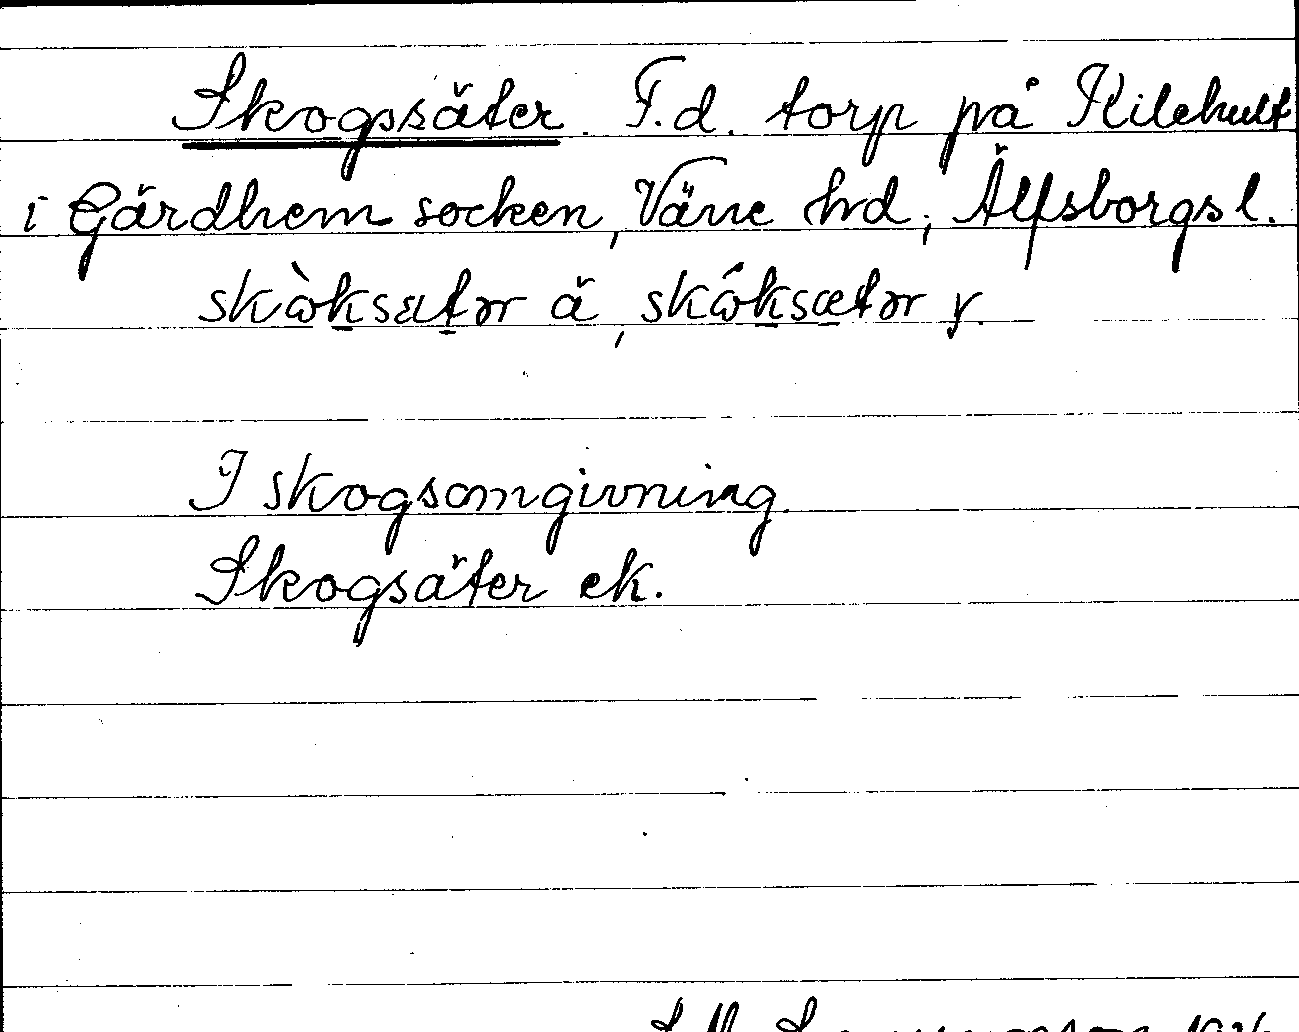 Skogssäter. F.d. torp på Kilehult
i Gärdhem socken, Väne hrd, Älfsborgs l.
skὼksætər ä, skώksætər y.
I skogsomgivning.
Skogsäter ek.